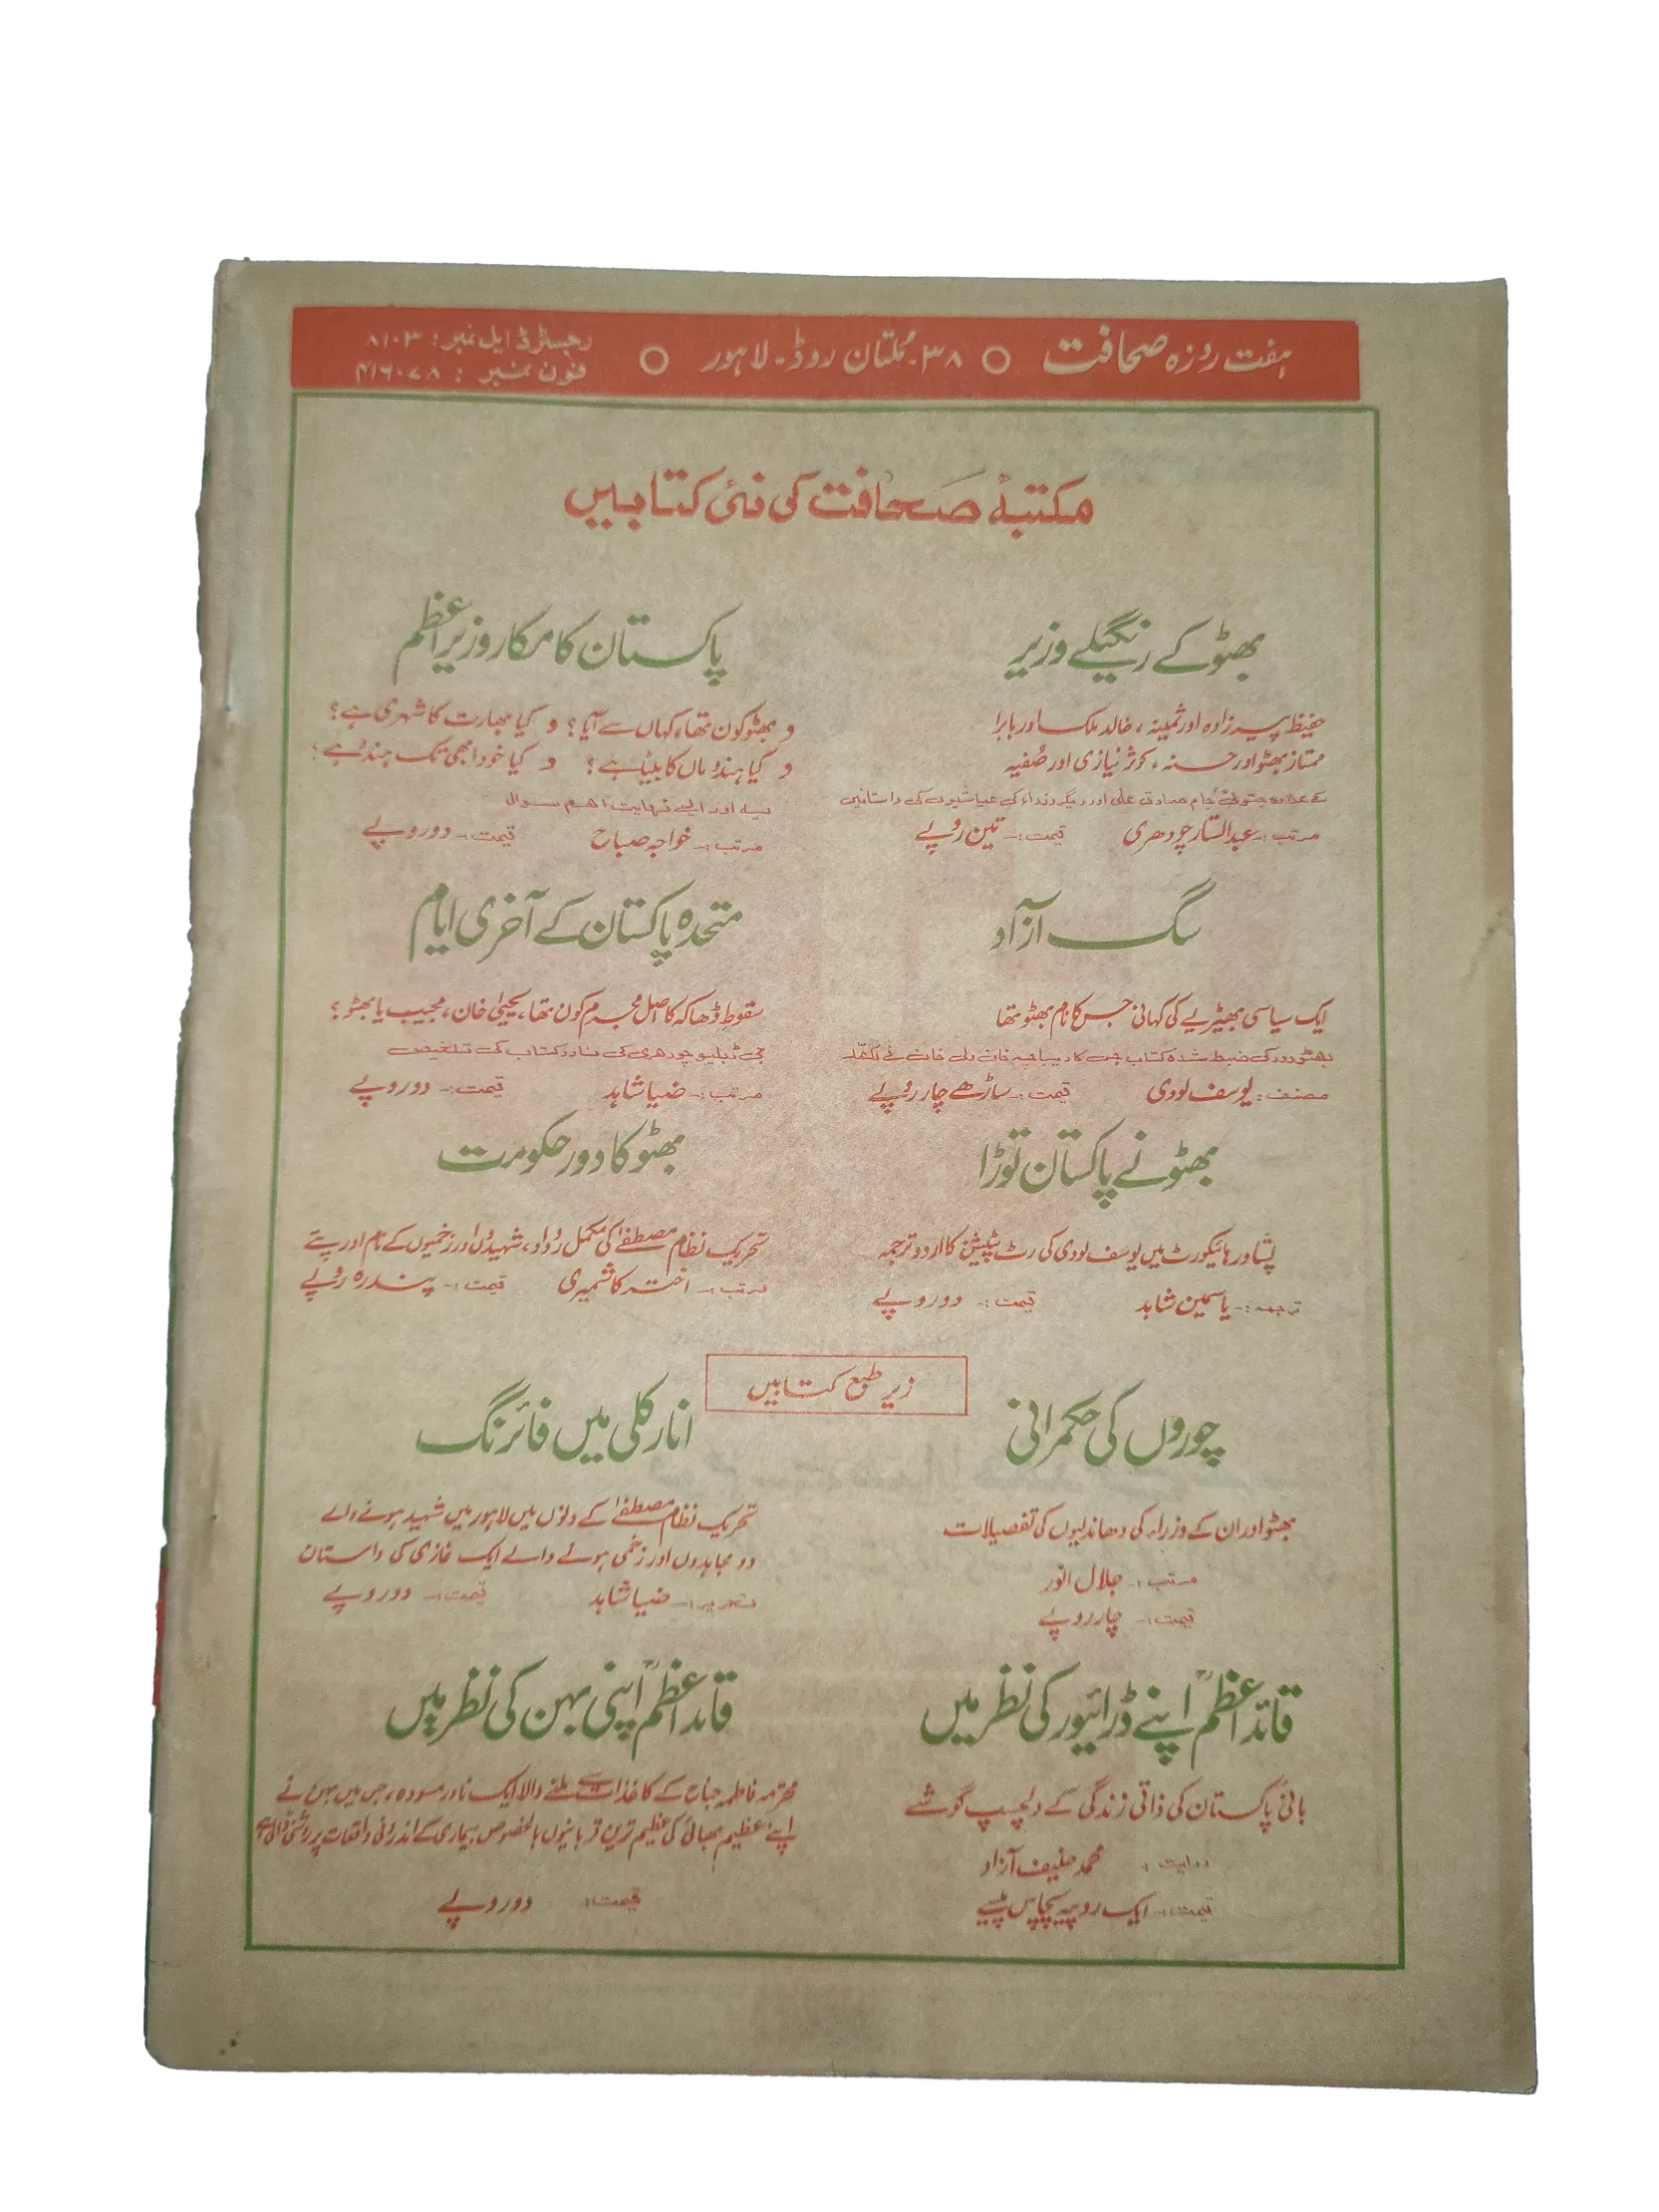 ہفت روزہ صحافت ○ ۳۸۔ ملتان روڈ۔ لاہور ○
رجسٹرڈ ایل نمبر: ۸۱۰۳
فون نمبر: ۴۱۶۰۷۸
مکتبۂ صحافت کی نئی کتابیں
بھٹو کے رنگیلے وزیر
حفیظ پیرزادہ اور ثمینہ، خالد ملک اور بابرا
ممتاز بھٹو اور حسنہ، کوثر نیازی اور صُفیہ
کے علاوہ جتوئی جام صادق علی اور دیگر وزراء کی عیاشیوں کی داستانیں
مرتب :۔ عبدالستار چودھری قیمت :۔ تین روپے
پاکستان کا مکار وزیراعظم
و بھٹو کون تھا، کہاں سے آیا؟ و کیا بھارت کا شہری ہے؟
و کیا ہندو ماں کا بیٹا ہے؟ و کیا خود ابھی تک ہندو ہے؟
یہ اور ایسے نہایت اہم سوال
مرتب :۔ خواجہ صباح قیمت :۔ دو روپے
سگ آزاد
ایک سیاسی بھیڑیے کی کہانی جس کا نام بھٹو تھا
بھٹو دور کی ضبط شدہ کتاب جس کا دیباچہ خان ولی خان نے لکھا
مصنف : یوسف لودی قیمت :۔ ساڑھے چار روپے
متحدہ پاکستان کے آخری ایام
سقوط ڈھاکہ کا اصل مجرم کون تھا، یحییٰ خان، مجیب یا بھٹو؟
جی ڈبلیو چودھری کی نادر کتاب کی تلخیص
مرتب :۔ ضیا شاہد قیمت :۔ دو روپے
بھٹو نے پاکستان توڑا
پشاور ہائیکورٹ میں یوسف لودی کی رٹ پٹیشن کا اردو ترجمہ
ترجمہ :۔ یاسمین شاہد قیمت :۔ دو روپے
بھٹو کا دور حکومت
تحریک نظام مصطفےٰ کی مکمل روداد، شہیدوں اور زخمیوں کے نام اور پتے
مرتب :۔ اختر کاشمیری قیمت :۔ پندرہ روپے
زیر طبع کتابیں
چوروں کی حکمرانی
بھٹو اور ان کے وزراء کی دھاندلیوں کی تفصیلات
مرتب :۔ جلال انور
قیمت :۔ چار روپے
انارکلی میں فائرنگ
تحریک نظام مصطفےٰ کے دنوں میں لاہور میں شہید ہونے والے
دو مجاہدوں اور زخمی ہونے والے ایک غازی کی داستان
تحریر :۔ ضیا شاہد قیمت :۔ دو روپے
قائد اعظمؒ اپنے ڈرائیور کی نظر میں
بانیٔ پاکستان کی ذاتی زندگی کے دلچسپ گوشے
روایت : محمد حنیف آزاد
قیمت :۔ ایک روپیہ پچاس پیسے
قائد اعظمؒ اپنی بہن کی نظر میں
محترمہ فاطمہ جناح کے کاغذات سے ملنے والا ایک نادر مسودہ، جس میں بہن نے
اپنے عظیم بھائی کی عظیم ترین قربانیوں بالخصوص بیماری کے اندرونی واقعات پر روشنی ڈالی ہے
قیمت : دو روپے